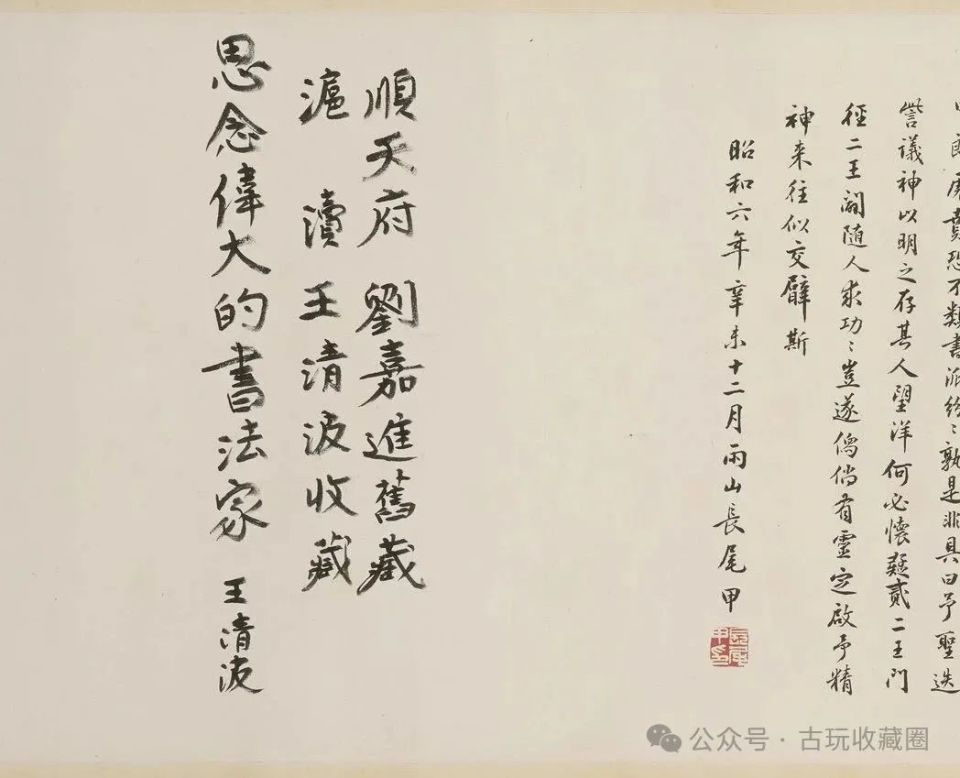 郎虎賁恐不類書派紛〻孰是非具曰予聖迭
訾議神以明之存其人望洋何必懷疑貳二王門
徑二王闢隨人求功〻豈遂倘有靈定啟予精
神来往似交臂斯
昭和六年辛未十二月雨山長尾甲
長尾甲印
順天府 劉嘉進舊藏
滬 瀆 王清波收藏
思念偉大的書法家 王清波
公众号 · 古玩收藏圈